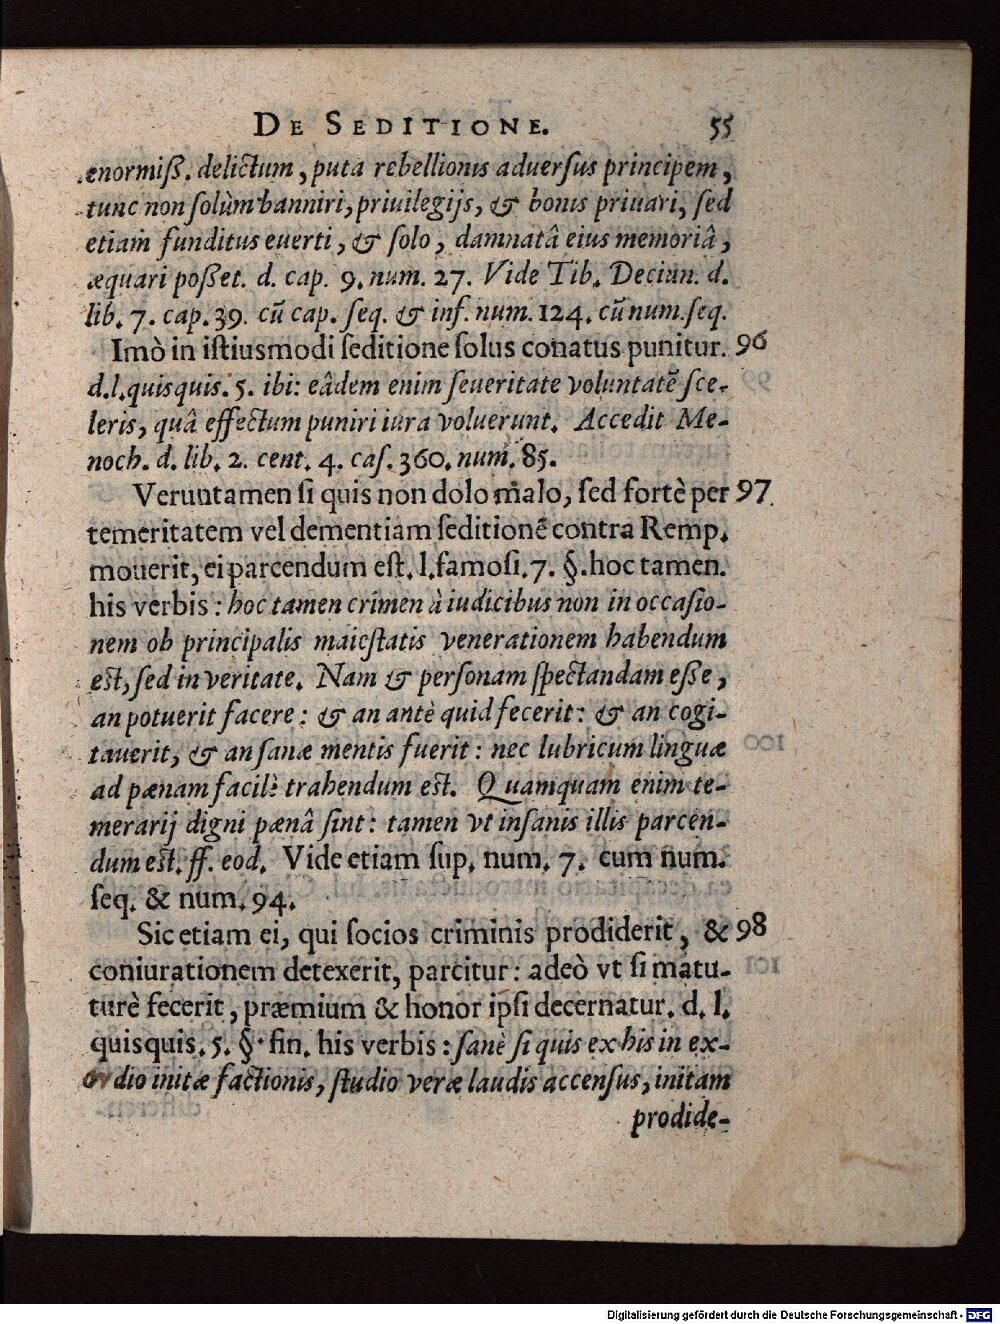 DE SEDITIONE. 55
enormiß. delictum, puta rebellionis aduerſus principem,
tunc non ſolùm banniri, priuilegijs, & bonis priuari, ſed
etiam funditus euerti, & ſolo, damnatâ eius memoriâ,
æquari poßet. d. cap. 9. num. 27. Vide Tib. Decian. d.
lib. 7. cap. 39. cū cap. ſeq. & inf. num. 124. cū num. ſeq.
Imò in iſtiusmodi ſeditione ſolus conatus punitur. 96
d. l. quisquis. 5. ibi: eâdem enim ſeueritate voluntatē ſce-
leris, quâ effectum puniri iura voluerunt. Accedit Me-
noch. d. lib. 2. cent. 4. caſ. 360. num. 85.
Veruntamen ſi quis non dolo malo, ſed fortè per 97
temeritatem vel dementiam ſeditionē contra Remp.
mouerit, ei parcendum eſt. l. famoſi. 7. §. hoc tamen.
his verbis: hoc tamen crimen à iudicibus non in occaſio-
nem ob principalis maieſtatis venerationem habendum
eſt, ſed in veritate. Nam & perſonam ſpectandam eße,
an potuerit facere: & an antè quid fecerit: & an cogi-
tauerit, & an ſanæ mentis fuerit: nec lubricum linguæ
ad pænam facilè trahendum eſt. Quamquam enim te-
merarij digni pænâ ſint: tamen vt inſanis illis parcen-
dum eſt. ff. eod. Vide etiam ſup. num. 7. cum num.
ſeq. & num. 94.
Sic etiam ei, qui ſocios criminis prodiderit, & 98
coniurationem detexerit, parcitur: adeò vt ſi matu-
turè fecerit, præmium & honor ipſi decernatur. d. l.
quisquis. 5. §. fin. his verbis: ſanè ſi quis ex his in ex-
dio initæ factionis, ſtudio veræ laudis accenſus, initam
prodide-
Digitalisierung gefördert durch die Deutsche Forschungsgemeinschaft - DFG